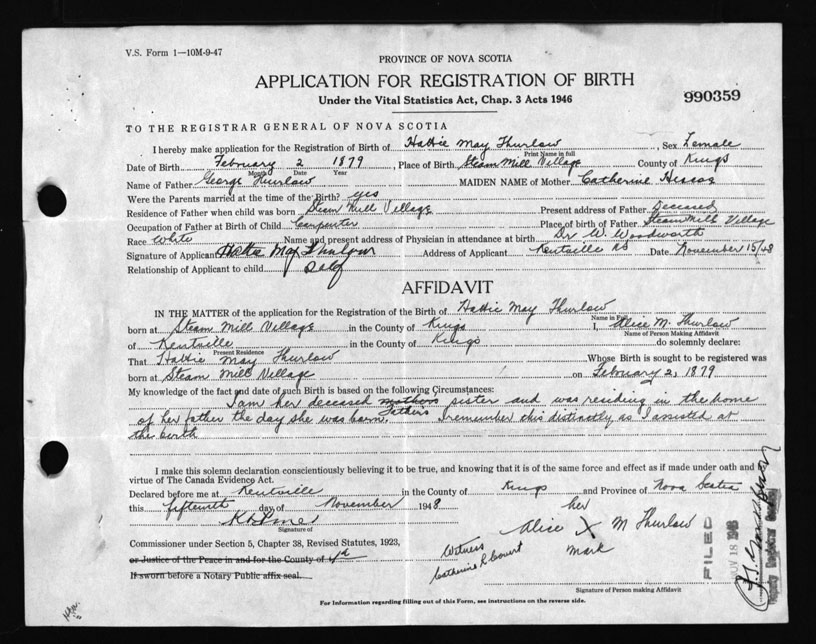 V.S. Form 1—10M-9-47
PROVINCE OF NOVA SCOTIA
APPLICATION FOR REGISTRATION OF BIRTH
Under the Vital Statistics Act, Chap. 3 Acts 1946
990359
TO THE REGISTRAR GENERAL OF NOVA SCOTIA
I hereby make application for the Registration of Birth of Hattie May Thurlow, Sex Female
Print Name in full
Date of Birth February 2 1879, Place of Birth Steam Mill Village County of Kings
Month Date Year
Name of Father George Thurlow MAIDEN NAME of Mother Catherine
Were the Parents married at the time of the Birth? yes
Residence of Father when child was born Steam Mill Village Present address of Father Deceased
Occupation of Father at Birth of Child Carpenter Place of birth of Father Steam Mill Village
Race White Name and present address of Physician in attendance at birth Dr W. Woodworth
Signature of Applicant Hattie May Thurlow Address of Applicant Kentville NS Date November 15/48
Relationship of Applicant to child Self
AFFIDAVIT
IN THE MATTER of the application for the Registration of the Birth of Hattie May Thurlow
Name in Full
born at Steam Mill Village in the County of Kings I, Alice M. Thurlow
Name of Person Making Affidavit
of Kentville in the County of Kings do solemnly declare:
Present Residence
That Hattie May Thurlow Whose Birth is sought to be registered was
born at Steam Mill Village on February 2, 1879
My knowledge of the fact and date of such Birth is based on the following Circumstances:
I am her deceased mothers sister and was residing in the home
Father's
of her father the day she was born. I remember this distinctly as I assisted at
the birth
I make this solemn declaration conscientiously believing it to be true, and knowing that it is of the same force and effect as if made under oath and by
virtue of The Canada Evidence Act.
Declared before me at Kentville in the County of Kings and Province of Nova Scotia
this fifteenth day of November 1948
her
Alice X M Thurlow
mark
Signature of
Commissioner under Section 5, Chapter 38, Revised Statutes, 1923,
or Justice of the Peace in and for the County of
If sworn before a Notary Public affix seal.
Witness
Catherine
FILED
NOV 18 1948
Signature of Person making Affidavit
For Information regarding filling out of this Form, see instructions on the reverse side.